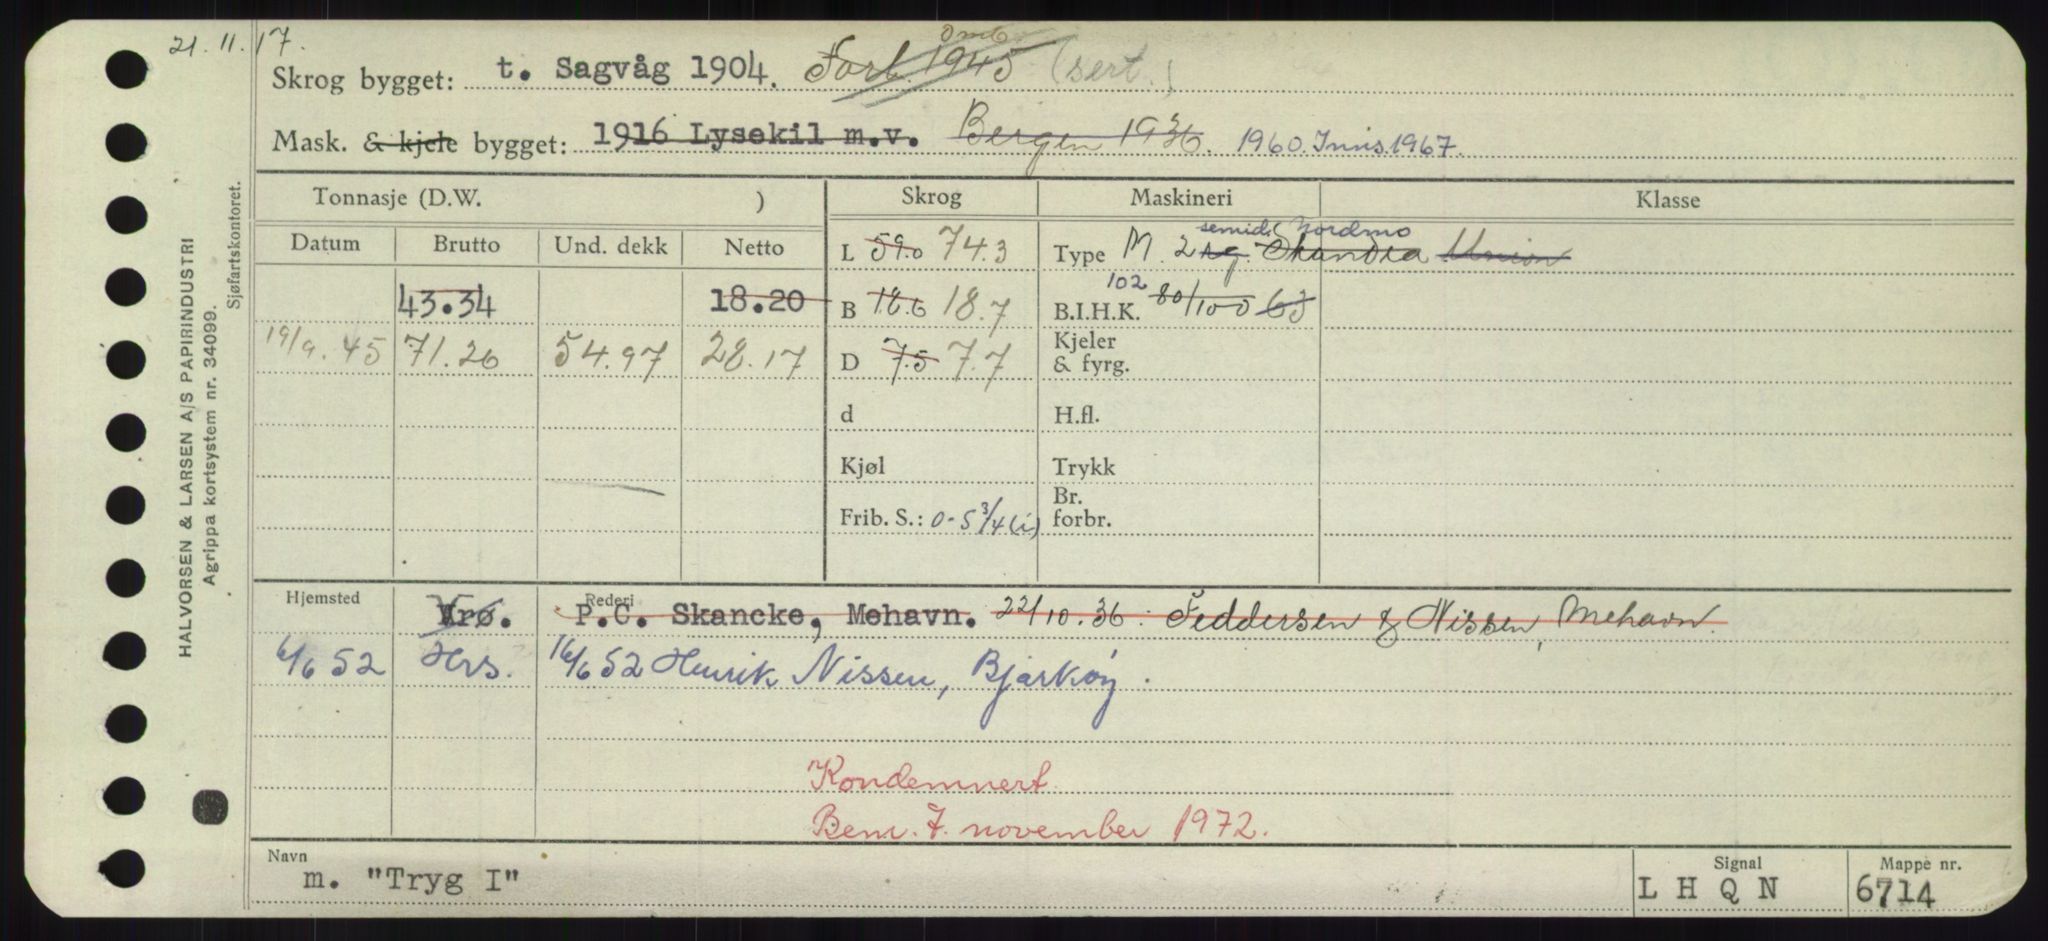 21. 11. 17.
Skrog bygget: t. Sagvåg 1904. Forl. 1945 omb (sert.)
Mask. & kjele bygget: 1916 Lysekil m.v. Bergen 1936. 1960. Inns. 1967.
Tonnasje (D.W. ) Skrog Maskineri Klasse
Datum Brutto Und. dekk Netto
L 59.0 74.3 Type M 2 semid. Nordmo Skandia Union
43.34 18.20 B 18.6 18.7 B.I.H.K. 102 80/100 63
19/9. 45 71.26 54.97 28.17 D 7.5 7.7 Kjeler & fyrg.
d H.fl.
Kjøl Trykk
Frib. S.: 0-5 3/4 (i) Br. forbr.
Hjemsted Rederi
Vrø. P.C. Skancke, Mehavn. 22/10. 36. Feddersen & Nissen, Mehavn.
6/6 52 Hrs. 16/6 52 Henrik Nissen, Bjarkøy.
Kondemnert
Bem. 7. november 1972.
Navn Signal Mappe nr.
m. "Tryg I" L H Q N 6714
HALVORSEN & LARSEN A/S PAPIRINDUSTRI
Agrippa kortsystem nr. 34099.
Sjøfartskontoret.